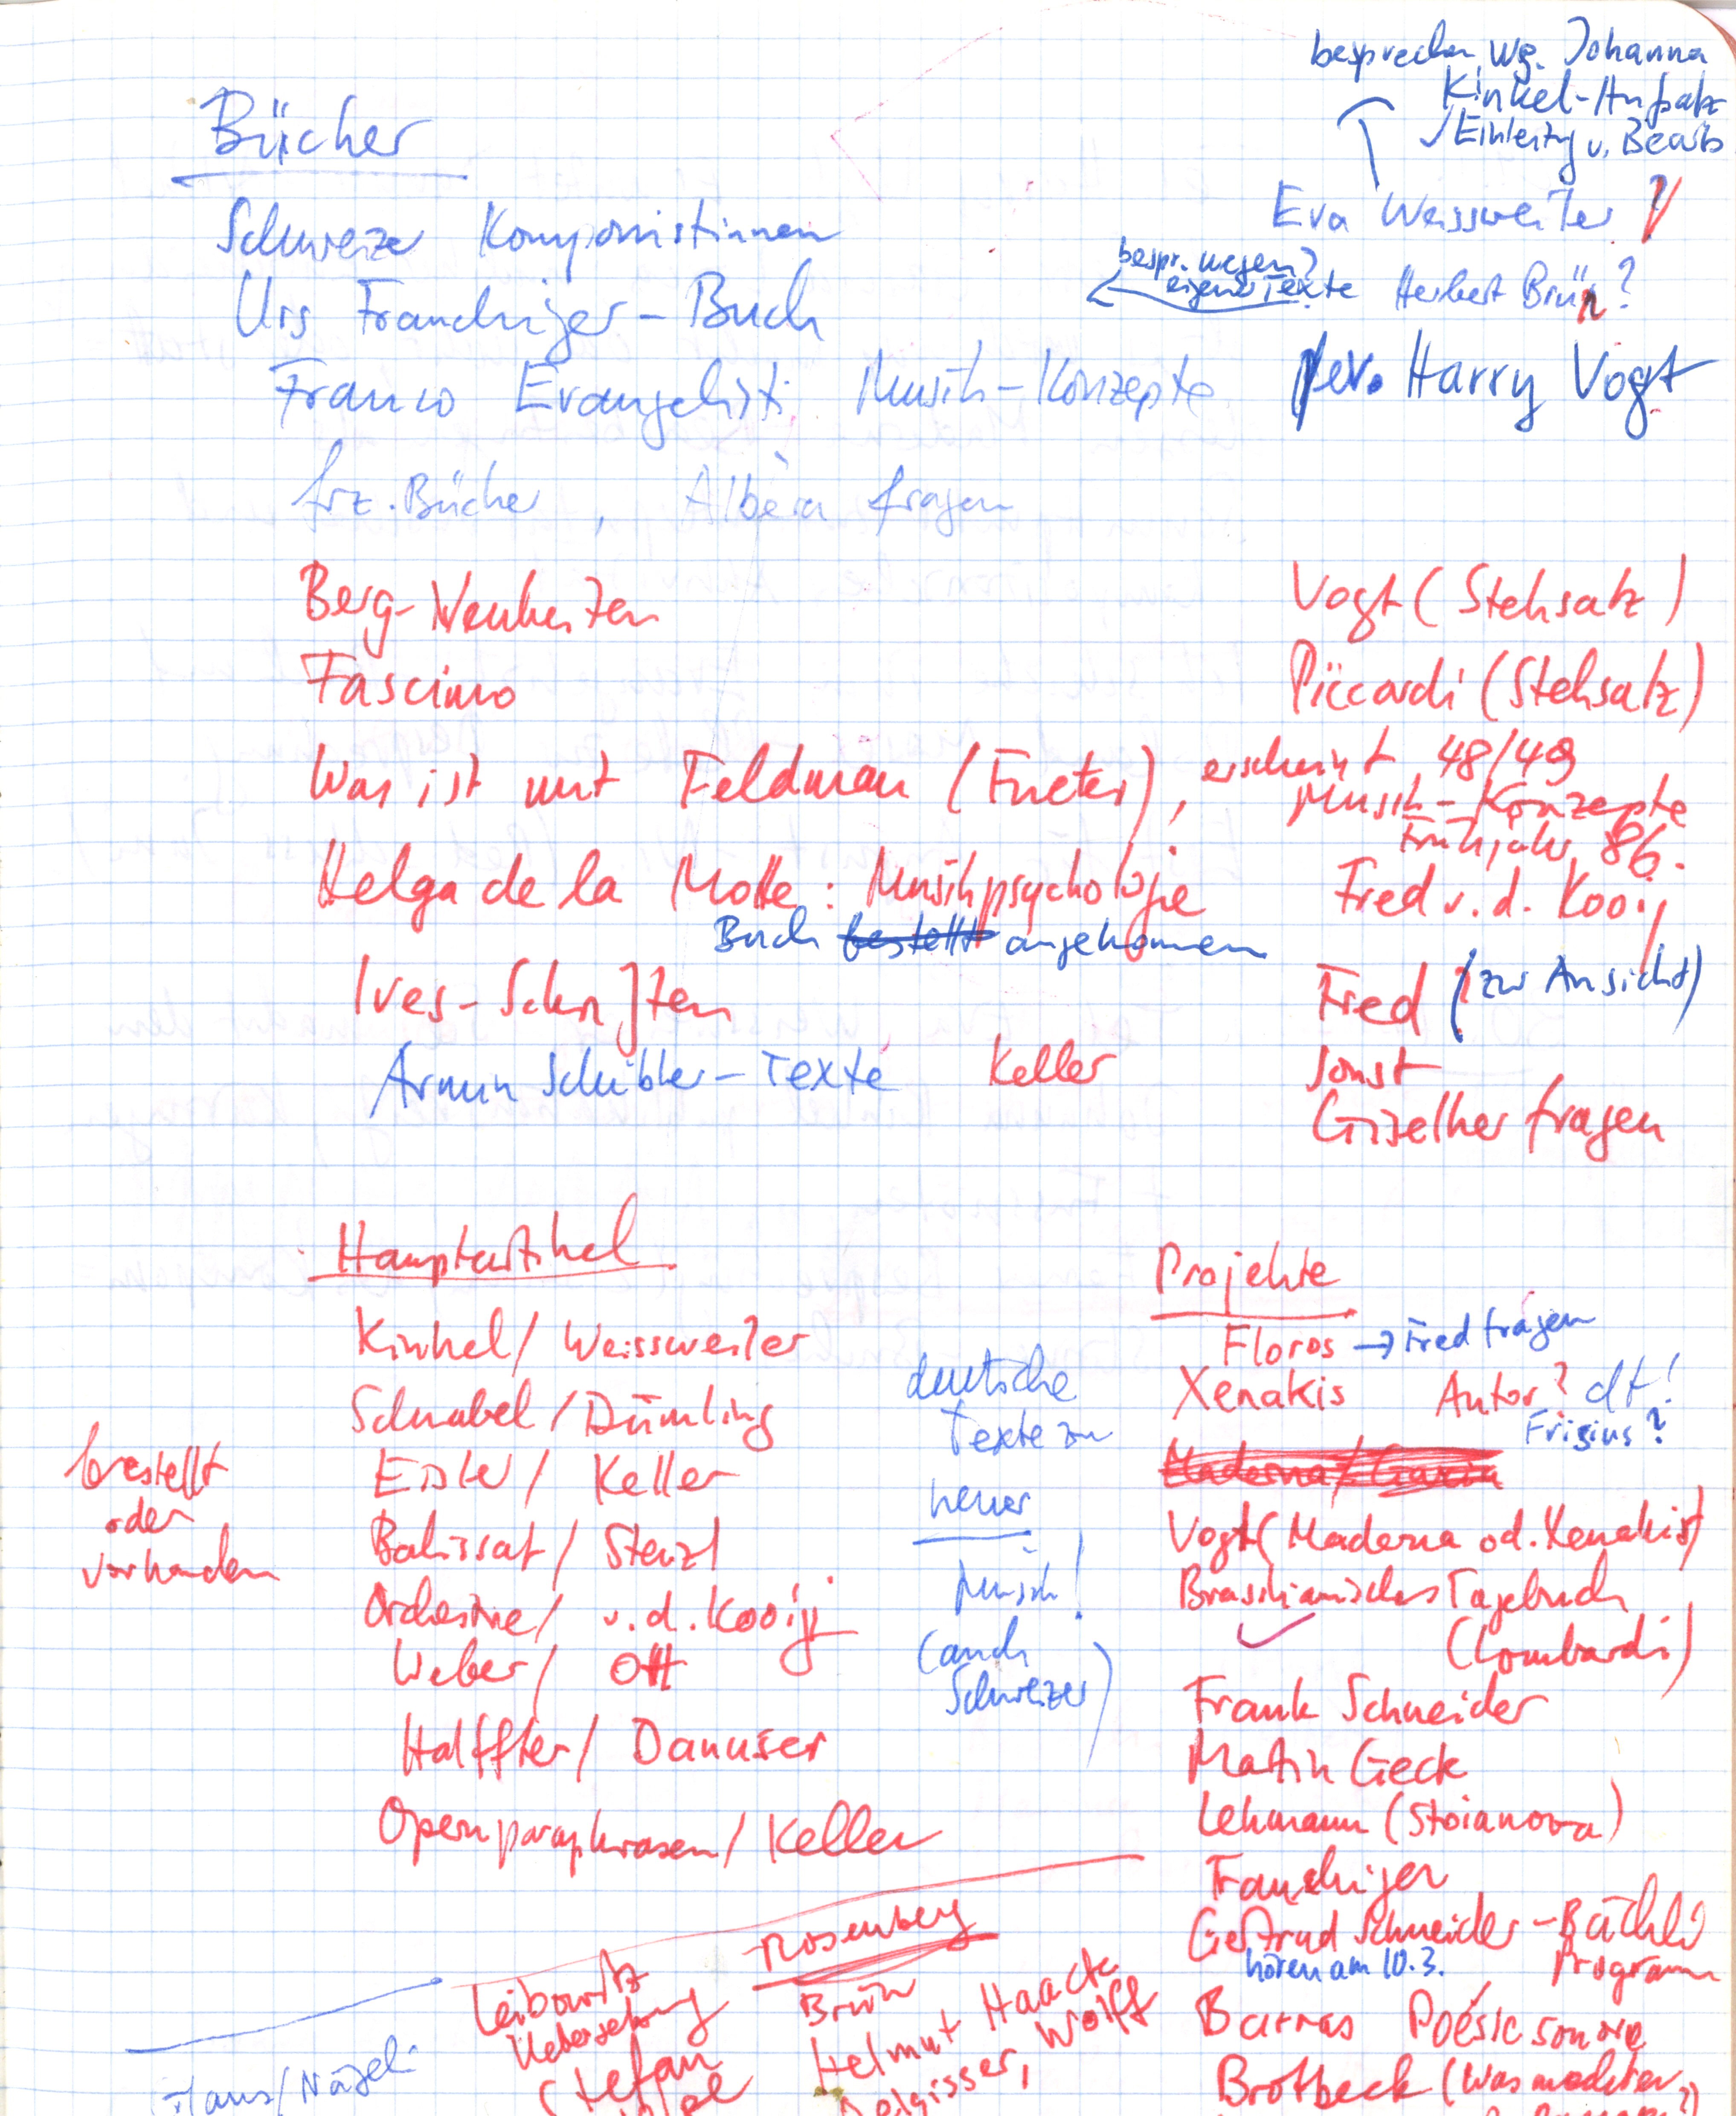 besprechen wg. Johanna
Kinkel-Aufsatz
Einleitg u. Bearb
Bücher
Eva Weissweiler
Schweizer Komponistinnen
bespr. wegen?
eigene Texte Herbert Brün?
Urs Frauchiger - Buch
Franco Evangelisti Musik-Konzepte
Harry Vogt
frz. Bücher, Albèra fragen
Berg-Neuheiten Vogt (Stehsatz)
Fascismo Piccardi (Stehsatz)
Was ist mit Feldman (Fueter), erscheint 48/49
Musik-Konzepte
Frühjahr 86.
Helga de la Motte: Musikpsychologie Fred v. d. Kooij
Buch bestellt angekommen
Ives-Schriften Fred (zur Ansicht)
Armin Schibler - Texte Keller sonst
Giselher fragen
Hauptartikel
Kinkel / Weissweiler
Schnabel / Dümling
Eisler / Keller
Balissat / Stenzl
Orchestre / v. d. Kooij
Weber / Ott
Halffter / Danuser
Opernparaphrasen / Keller
bestellt
oder
vorhanden
deutsche
Texte zu
neuer
Musik!
(auch
Schweizer)
Projekte
Floros → Fred fragen
Xenakis Autor? dt!
Frisius?
Maderna /
Vogt (Maderna od. Xenakis)
Brasilianisches Tagebuch
(Lombardi)
Frank Schneider
Martin Geck
Lehmann (Stoianova)
Frauchiger
Gertrud Schneider - Bächli
hören am 10.3. Programm
Barras Poésie sonore
Brotbeck (was möchte er
Rosenberg
Leibowitz
Uebersetzung
Stefan
Brün
Helmut Haacke
Wolff
Hans / Nägeli